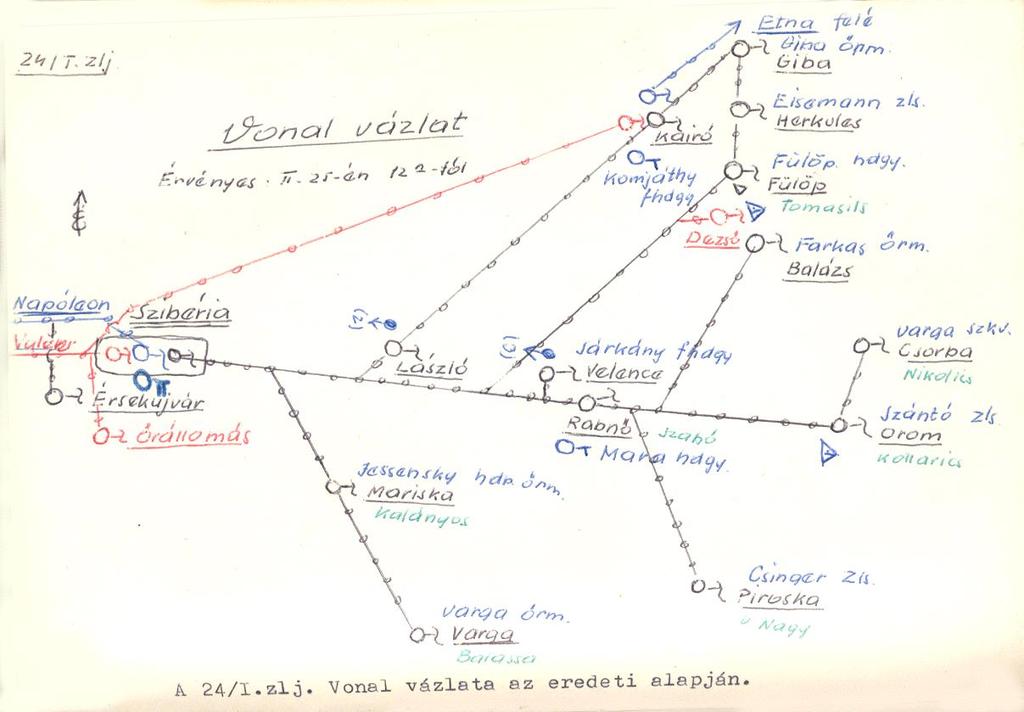 24/I.zlj.
Vonal vázlat
Érvényes. II. 25-én 12 2-től
Etna felé
Gina őrm.
Giba
Eisemann zls.
Herkules
Kairó
Komjáthy
fhdgy
Fülöp. hdgy.
Fülöp
Tomasils
Dezső
Farkas őrm.
Balázs
Napóleon
Szibéria
Érsekujvár
őrállomás
László
Sárkány fhdgy
Velence
Rabnő
Mara hdgy.
Szabó
Varga szkv.
Csorba
Nikolics
Szántó zls.
Orom
Kollarics
Jessensky hdp. őrm.
Mariska
Kalányos
Csinger zls.
Piroska
Nagy
Varga őrm.
Varga
Balassa
A 24/I.zlj. Vonal vázlata az eredeti alapján.